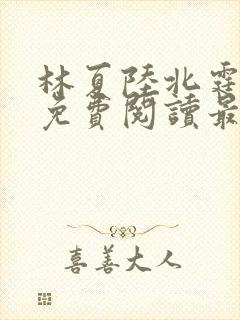 林夏陸北霆
免費閱讀最
喜善大人